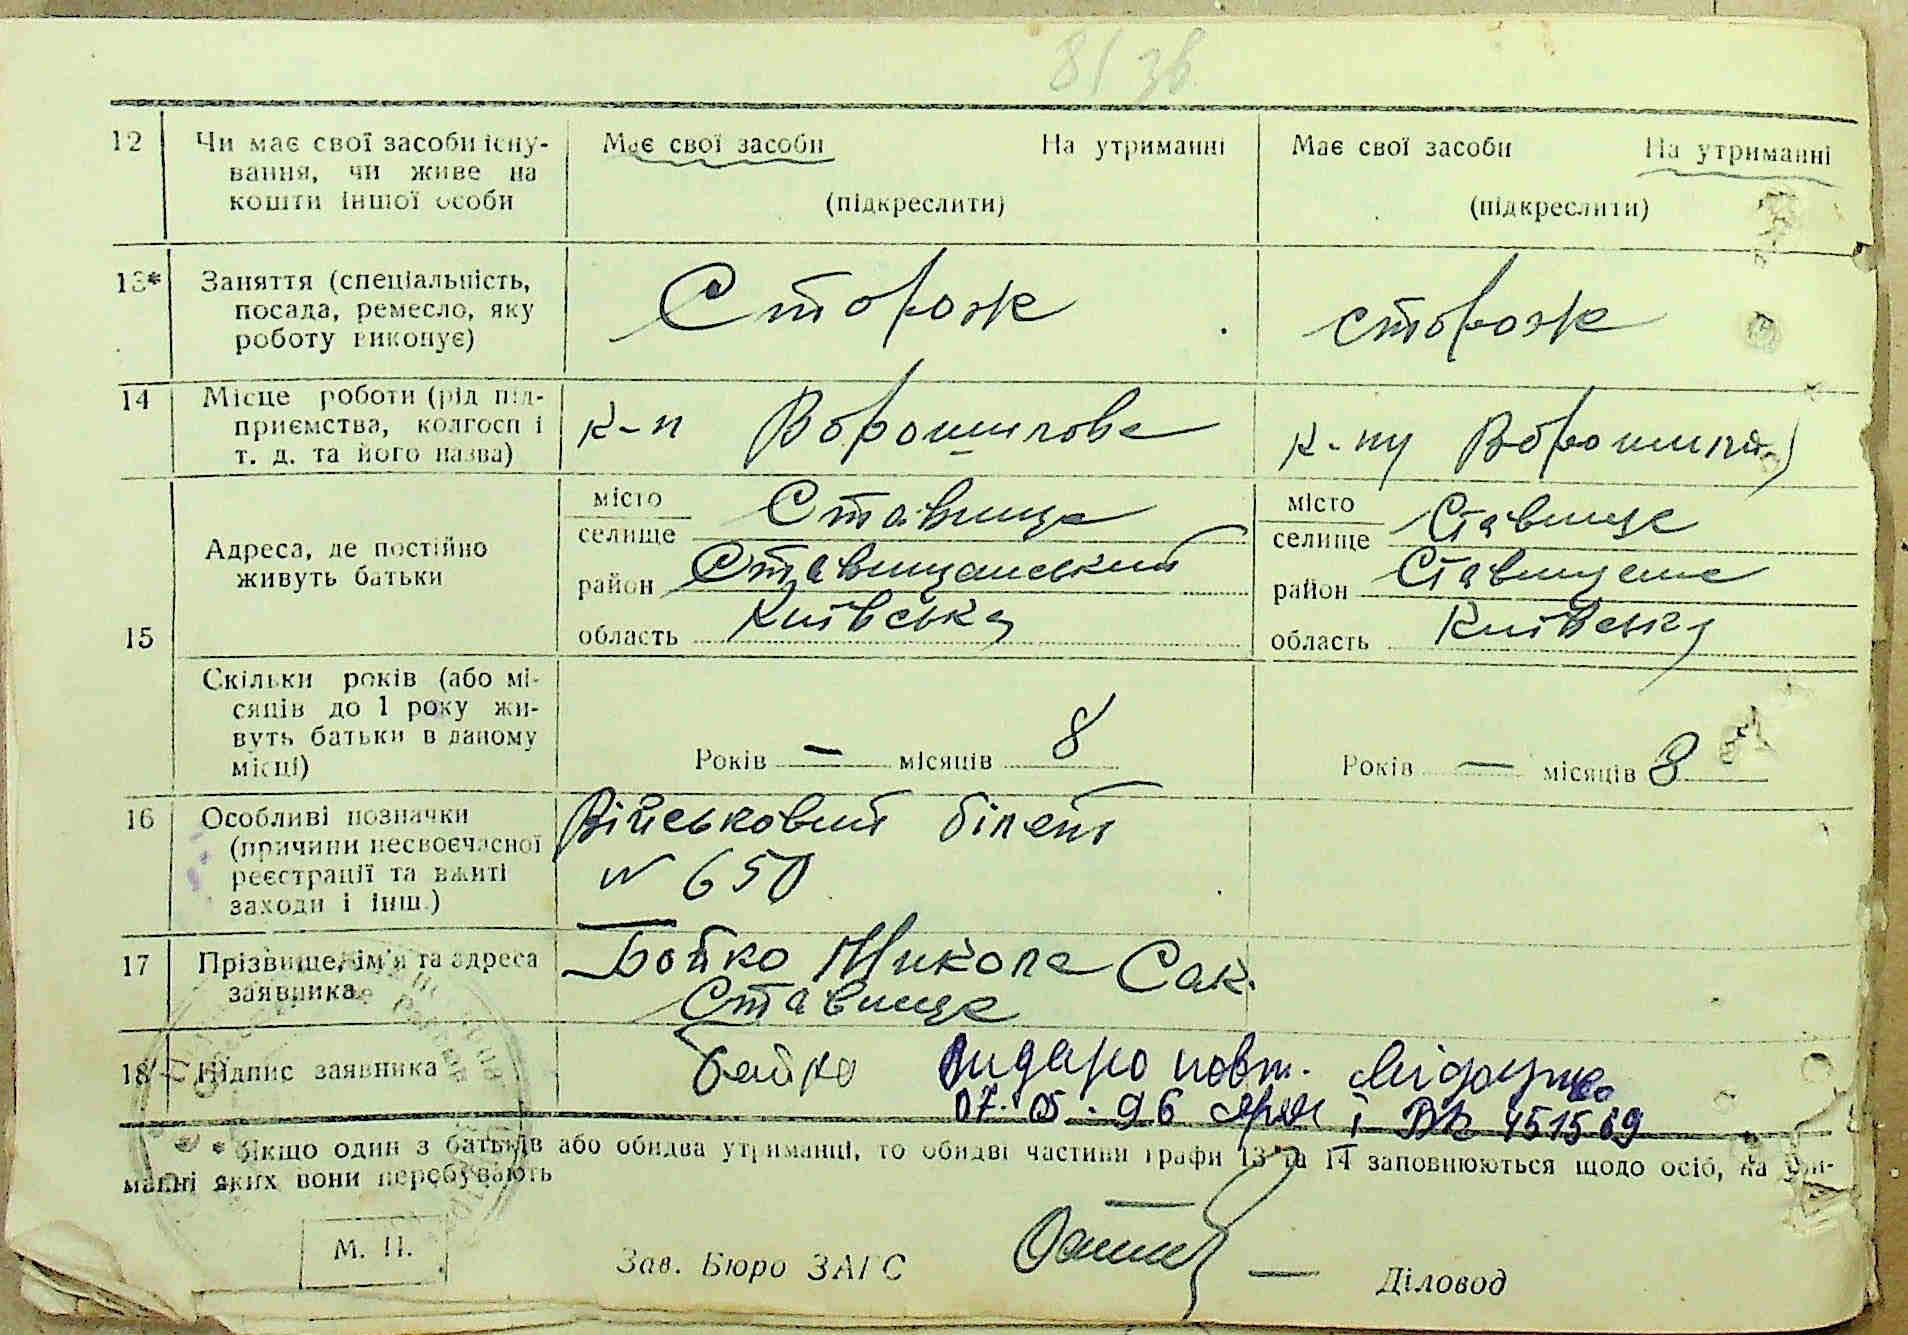 81 зв
12 Чи має свої засоби існу- Має свої засоби На утриманні Має свої засоби На утриманні
вання, чи живе на
кошти іншої особи (підкреслити) (підкреслити)
13* Заняття (спеціальність,
посада, ремесло, яку Сторож сторож
роботу виконує)
14 Місце роботи (рід під-
приємства, колгосп і к-п Ворошилова к-пу Ворошил
т. д. та його назва)
місто Ставище місто Ставище
селище селище
Адреса, де постійно
живуть батьки район Ставищанський район Ставищанс
15 область Київська область Київська
Скільки років (або мі-
сяців до 1 року жи-
вуть батьки в даному
місці) Років — місяців 8 Років — місяців 8
16 Особливі позначки Військовий білет
(причини несвоєчасної
реєстрації та вжиті N 650
заходи і інш.)
17 Прізвище, ім'я та адреса Бойко Микола Сак.
заявника Ставище
18 Підпис заявника Бойко Видано повт. свідоцтво
07.05.96 і ВК 451569
* Якщо один з батьків або обидва утриманці, то обидві частини графи 13 та 14 заповнюються щодо осіб, на утри-
манні яких вони перебувають
М. П. Зав. Бюро ЗАГС — Діловод